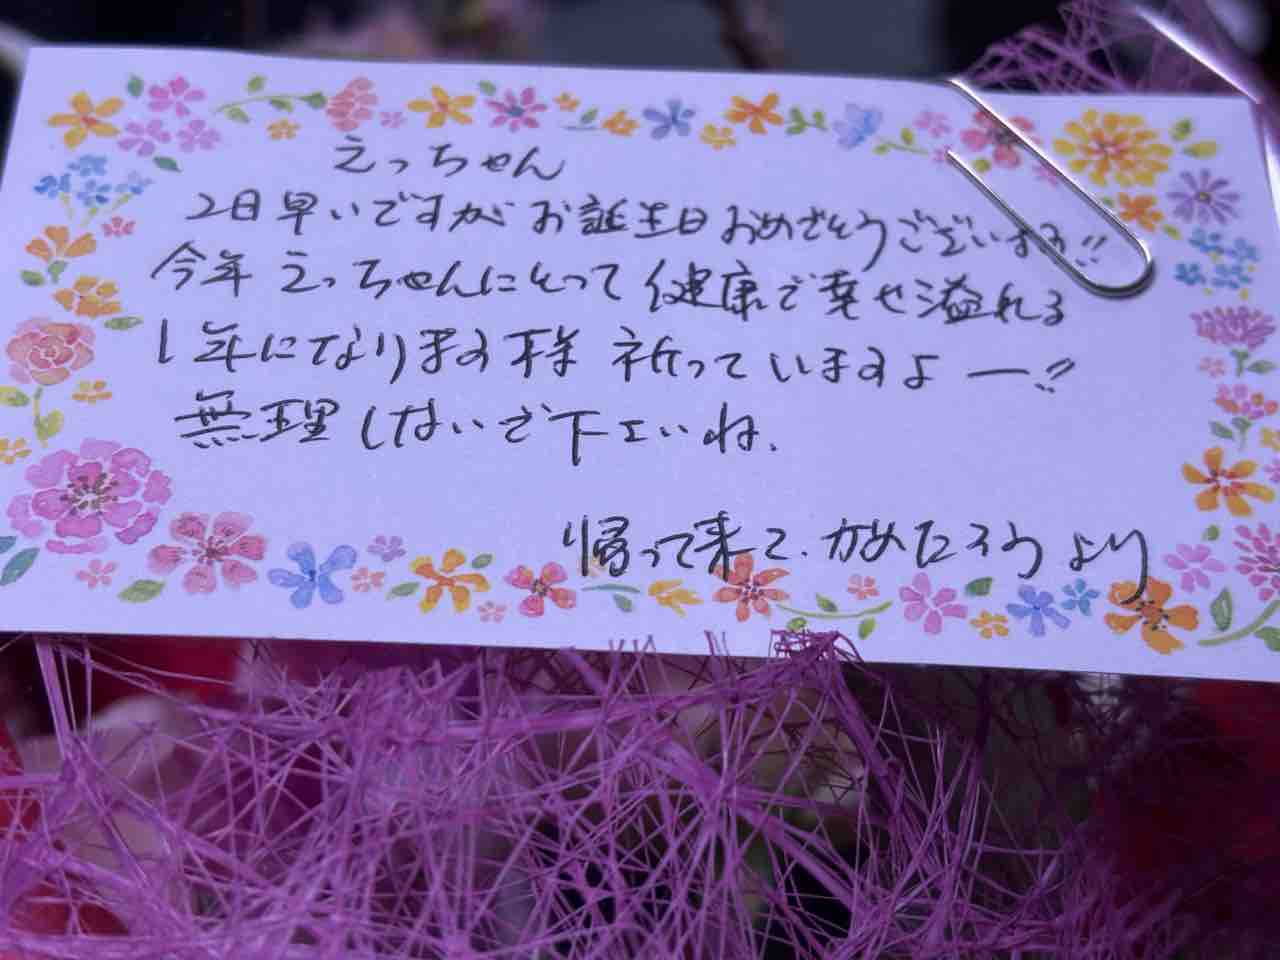 えっちゃん
2日早いですが お誕生日おめでとうございます!!
今年 えっちゃんにとって 健康で幸せ溢れる
1年になります様 祈っていますよー!!
無理しないで下さいね.
帰って来て. かめたろう より